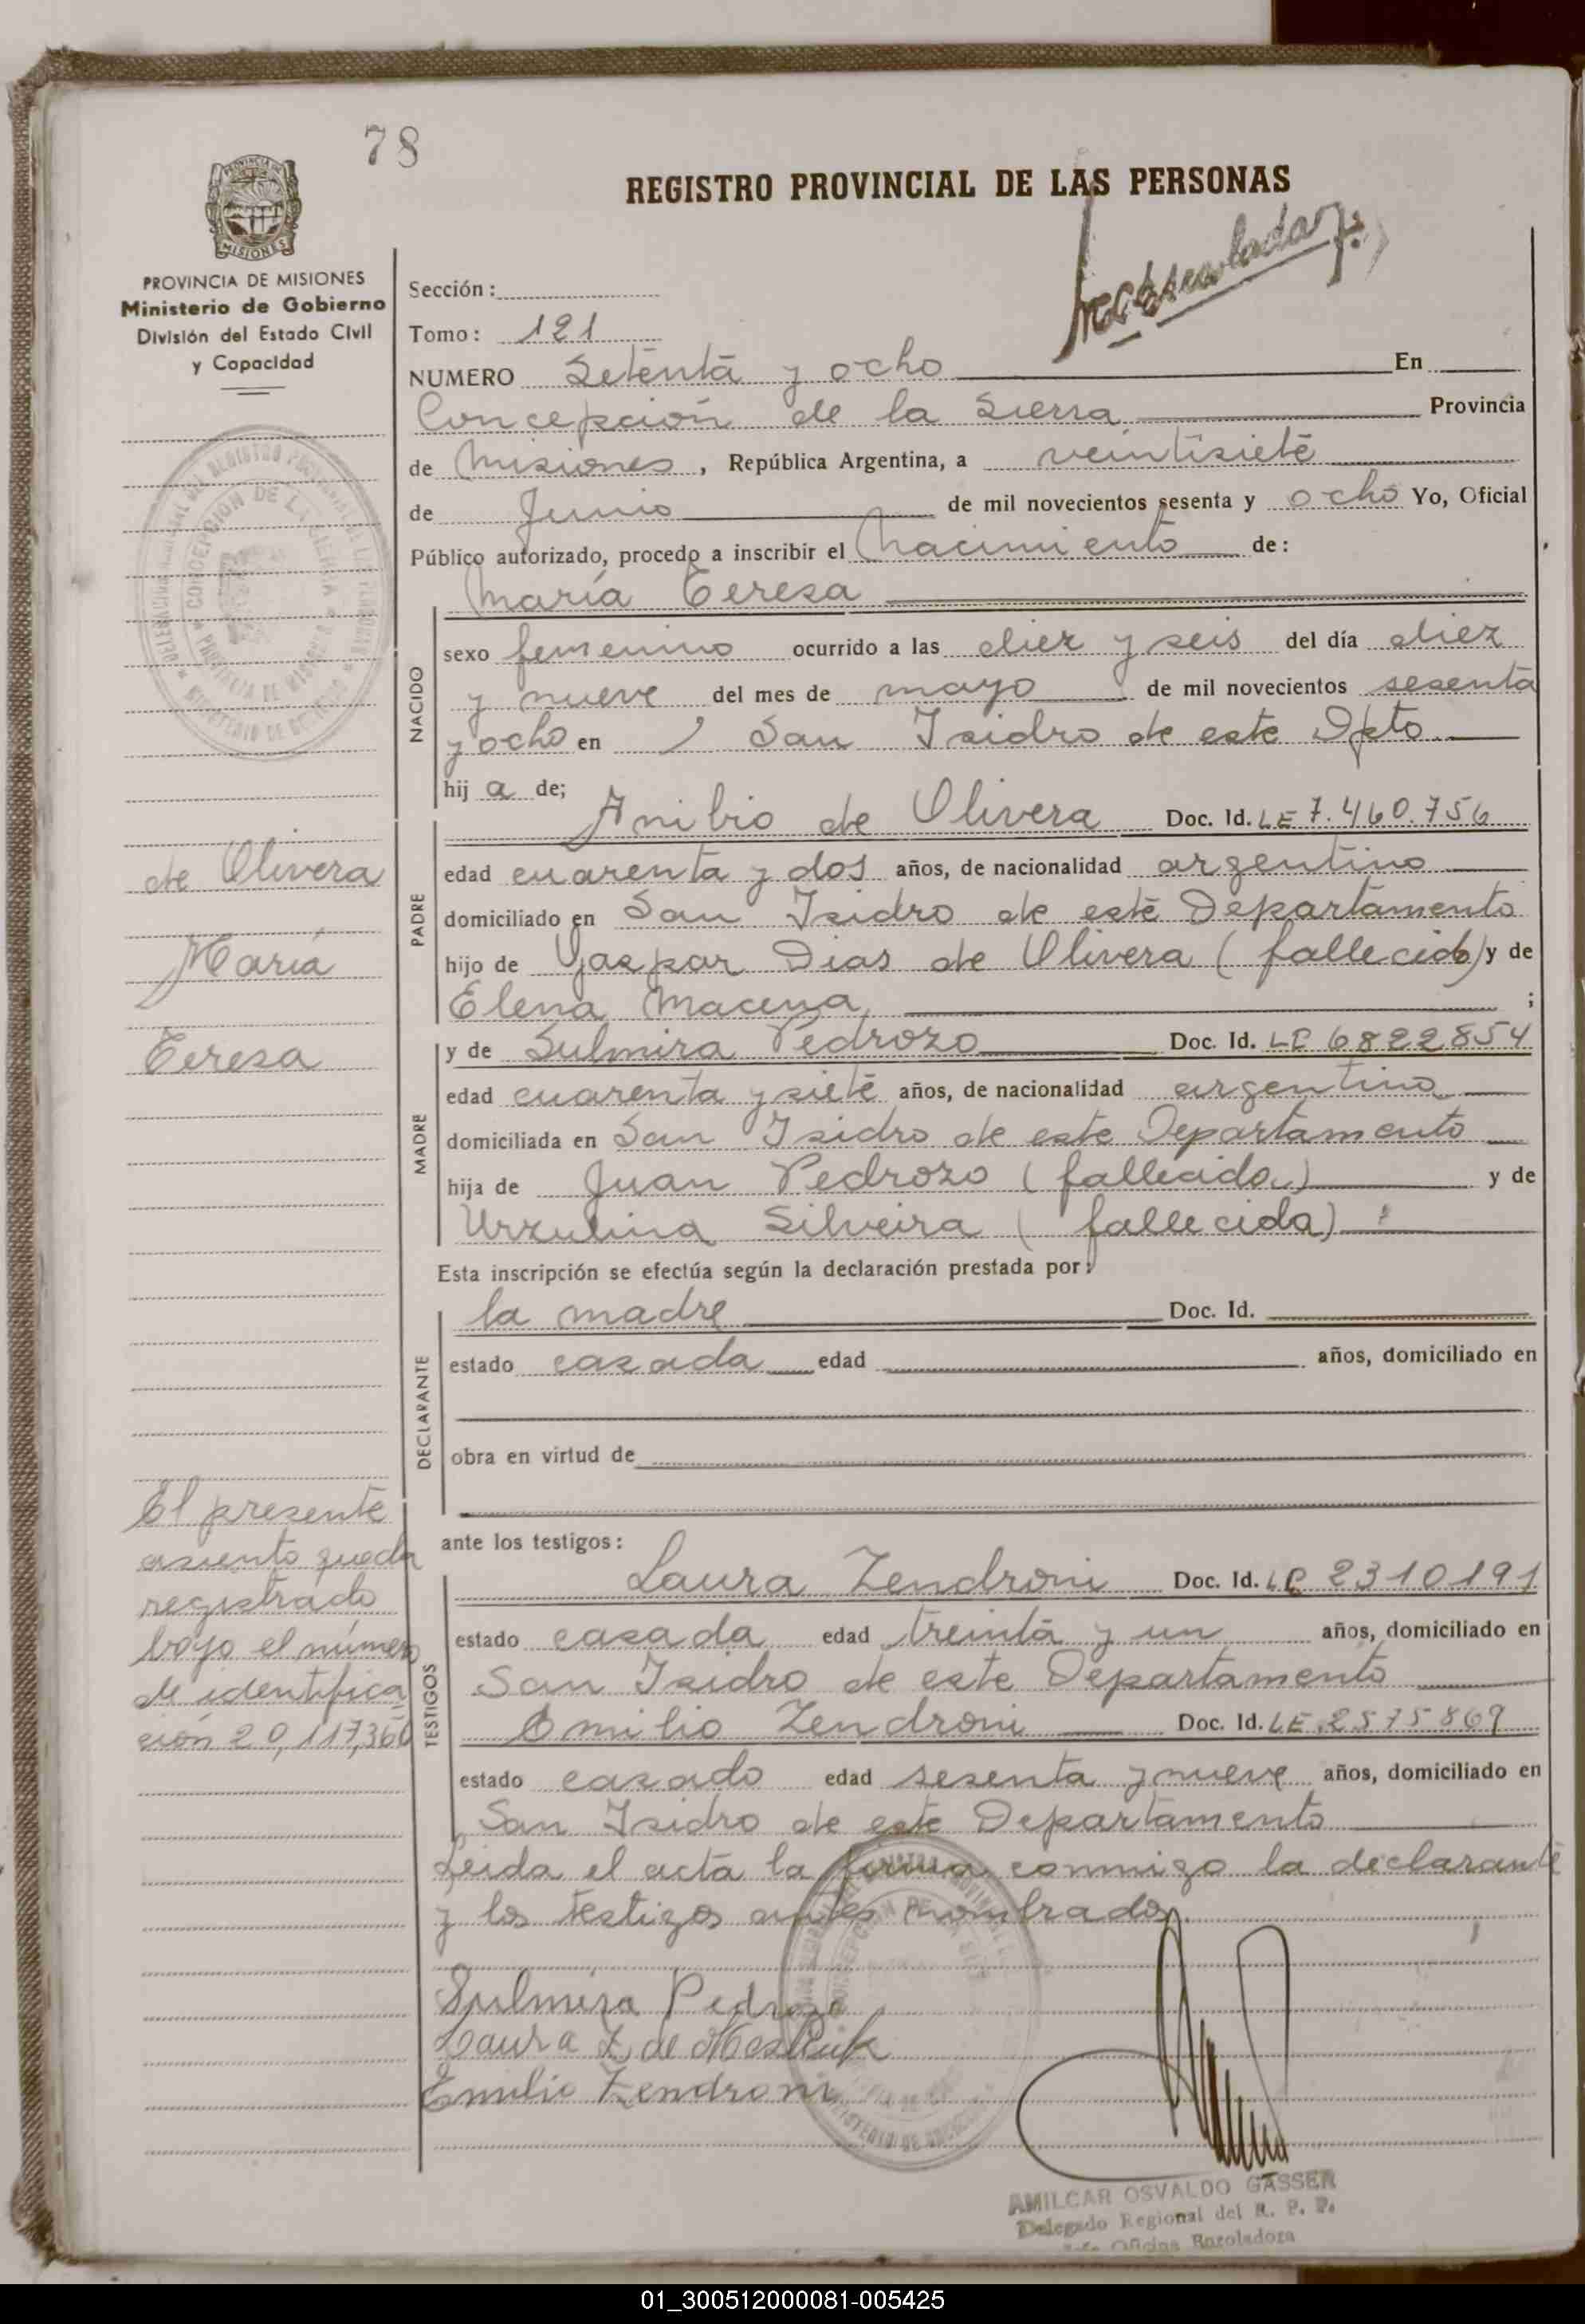 78
REGISTRO PROVINCIAL DE LAS PERSONAS
MISIONES
PROVINCIA DE MISIONES
Ministerio de Gobierno
División del Estado Civil
y Capacidad
Sección:
Tomo: 121
NUMERO Setenta y ocho En
Concepción de la Sierra Provincia
de Misiones, República Argentina, a veintisiete
de Junio de mil novecientos sesenta y ocho Yo, Oficial
Público autorizado, procedo a inscribir el Nacimiento de:
María Teresa
NACIDO
sexo femenino ocurrido a las diez y seis del día diez
y nueve del mes de mayo de mil novecientos sesenta
y ocho en San Isidro de este Dpto
hij a de;
PADRE
Anibio de Olivera Doc. Id. LE 7.460.756
edad cuarenta y dos años, de nacionalidad argentino
domiciliado en San Isidro de este Departamento
hijo de Gaspar Dias de Olivera (fallecido) y de
Elena Macena ;
MADRE
y de Sulmira Pedrozo Doc. Id. LC 6822854
edad cuarenta y siete años, de nacionalidad argentina
domiciliada en San Isidro de este Departamento
hija de Juan Pedrozo (fallecido) y de
Urzulina Silveira (fallecida)
Esta inscripción se efectúa según la declaración prestada por:
DECLARANTE
la madre Doc. Id.
estado casada edad años, domiciliado en
obra en virtud de
ante los testigos:
TESTIGOS
Laura Zendroni Doc. Id. LC 2310191
estado casada edad treinta y un años, domiciliado en
San Isidro de este Departamento
Emilio Zendroni Doc. Id. LE 2575869
estado casado edad sesenta y nueve años, domiciliado en
San Isidro de este Departamento
Leida el acta la firma conmigo la declarante
y los testigos antes nombrados.
Sulmira Pedrozo
Laura Z. de
Emilio Zendroni
de Olivera
María
Teresa
El presente
asiento queda
registrado
bajo el número
de identifica
ción 20,117,360
AMILCAR OSVALDO GASSER
Delegado Regional del R. P. P.
Oficina Enroladora
01_300512000081-005425